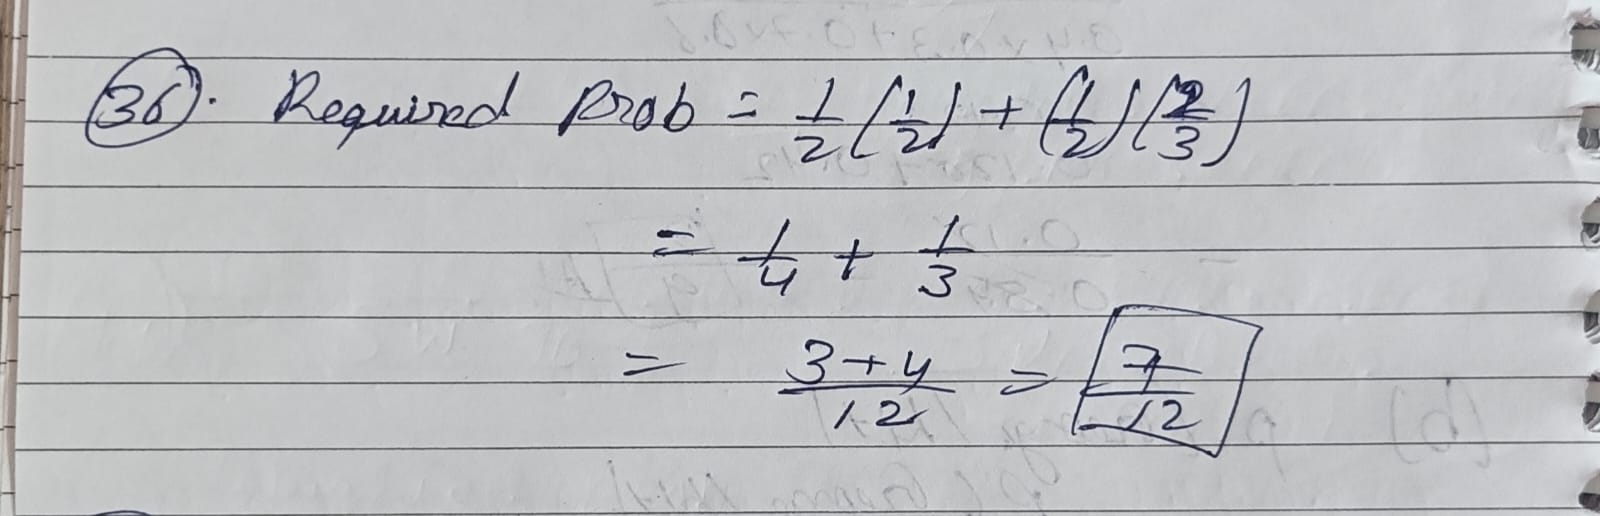 (36). Required Prob = 1/2 (1/2) + (1/2)(2/3)
= 1/4 + 1/3
= 3+4/12 = 7/12